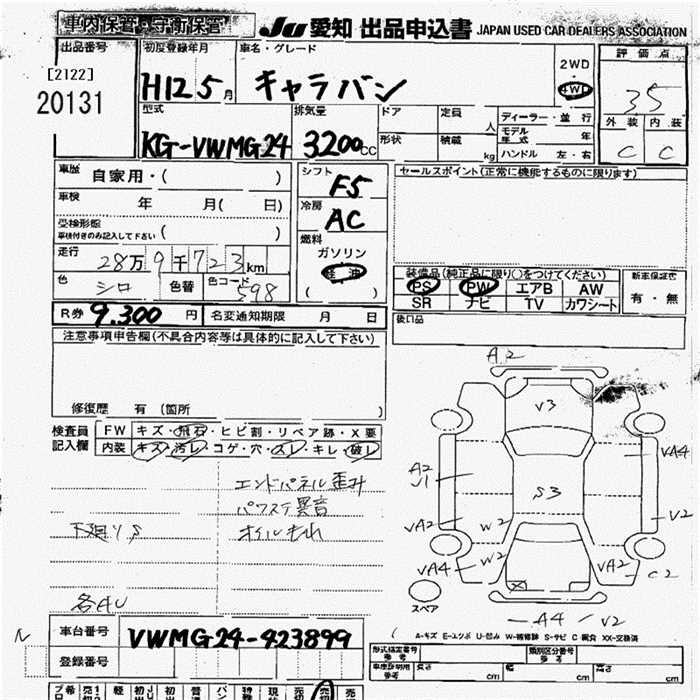 車内保管・守衛保管
JU 愛知 出品申込書 JAPAN USED CAR DEALERS ASSOCIATION
出品番号 初度登録年月 車名・グレード 評価点
[2122]
20131
H12 5月 キャラバン
2WD
4WD
35
型式 排気量 ドア 定員 人 ディーラー・並行 外装 内装
モデル年式 年
KG-VWMG24 3200CC 形状 積載 kg ハンドル 左・右 C C
車歴 自家用・( ) シフト F5 セールスポイント(正常に機能するものに限ります)
車検 年 月( 日) 冷房 AC
受検形態
車検付きのみ記入して下さい ( ) 燃料
ガソリン
走行 28万9千723km 軽油
( )
色 シロ 色替 色コード 598
装備品(純正品に限り○をつけてください) 新車保証書
PS PW エアB AW 有・無
SR ナビ TV カワシート
R券 9.300円 名変通知期限 月 日
後日品
注意事項申告欄(不具合内容等は具体的に記入して下さい)
修復歴 有 (箇所 )
検査員記入欄 FW キズ・飛石・ヒビ割・リペア跡・X要
内装 キズ・汚レ・コゲ・穴・スレ・キレ・破レ
エンドパネル歪み
パワステ異音
下廻りS オイルもれ
各AU
A2
V3
A2
V1
VA4
S3
VA2 W2 V2
VA4 W2 VA2 C2
スペア
A4 / V2
A-キズ E-エクボ U-凹み W-補修跡 S-サビ C-腐食 XX-交換済
車台番号 VWMG24-423899
登録番号
形式指定番号 参考 類別区分番号 参考
車庫証明用 参考 長さ cm 幅 cm 高さ cm